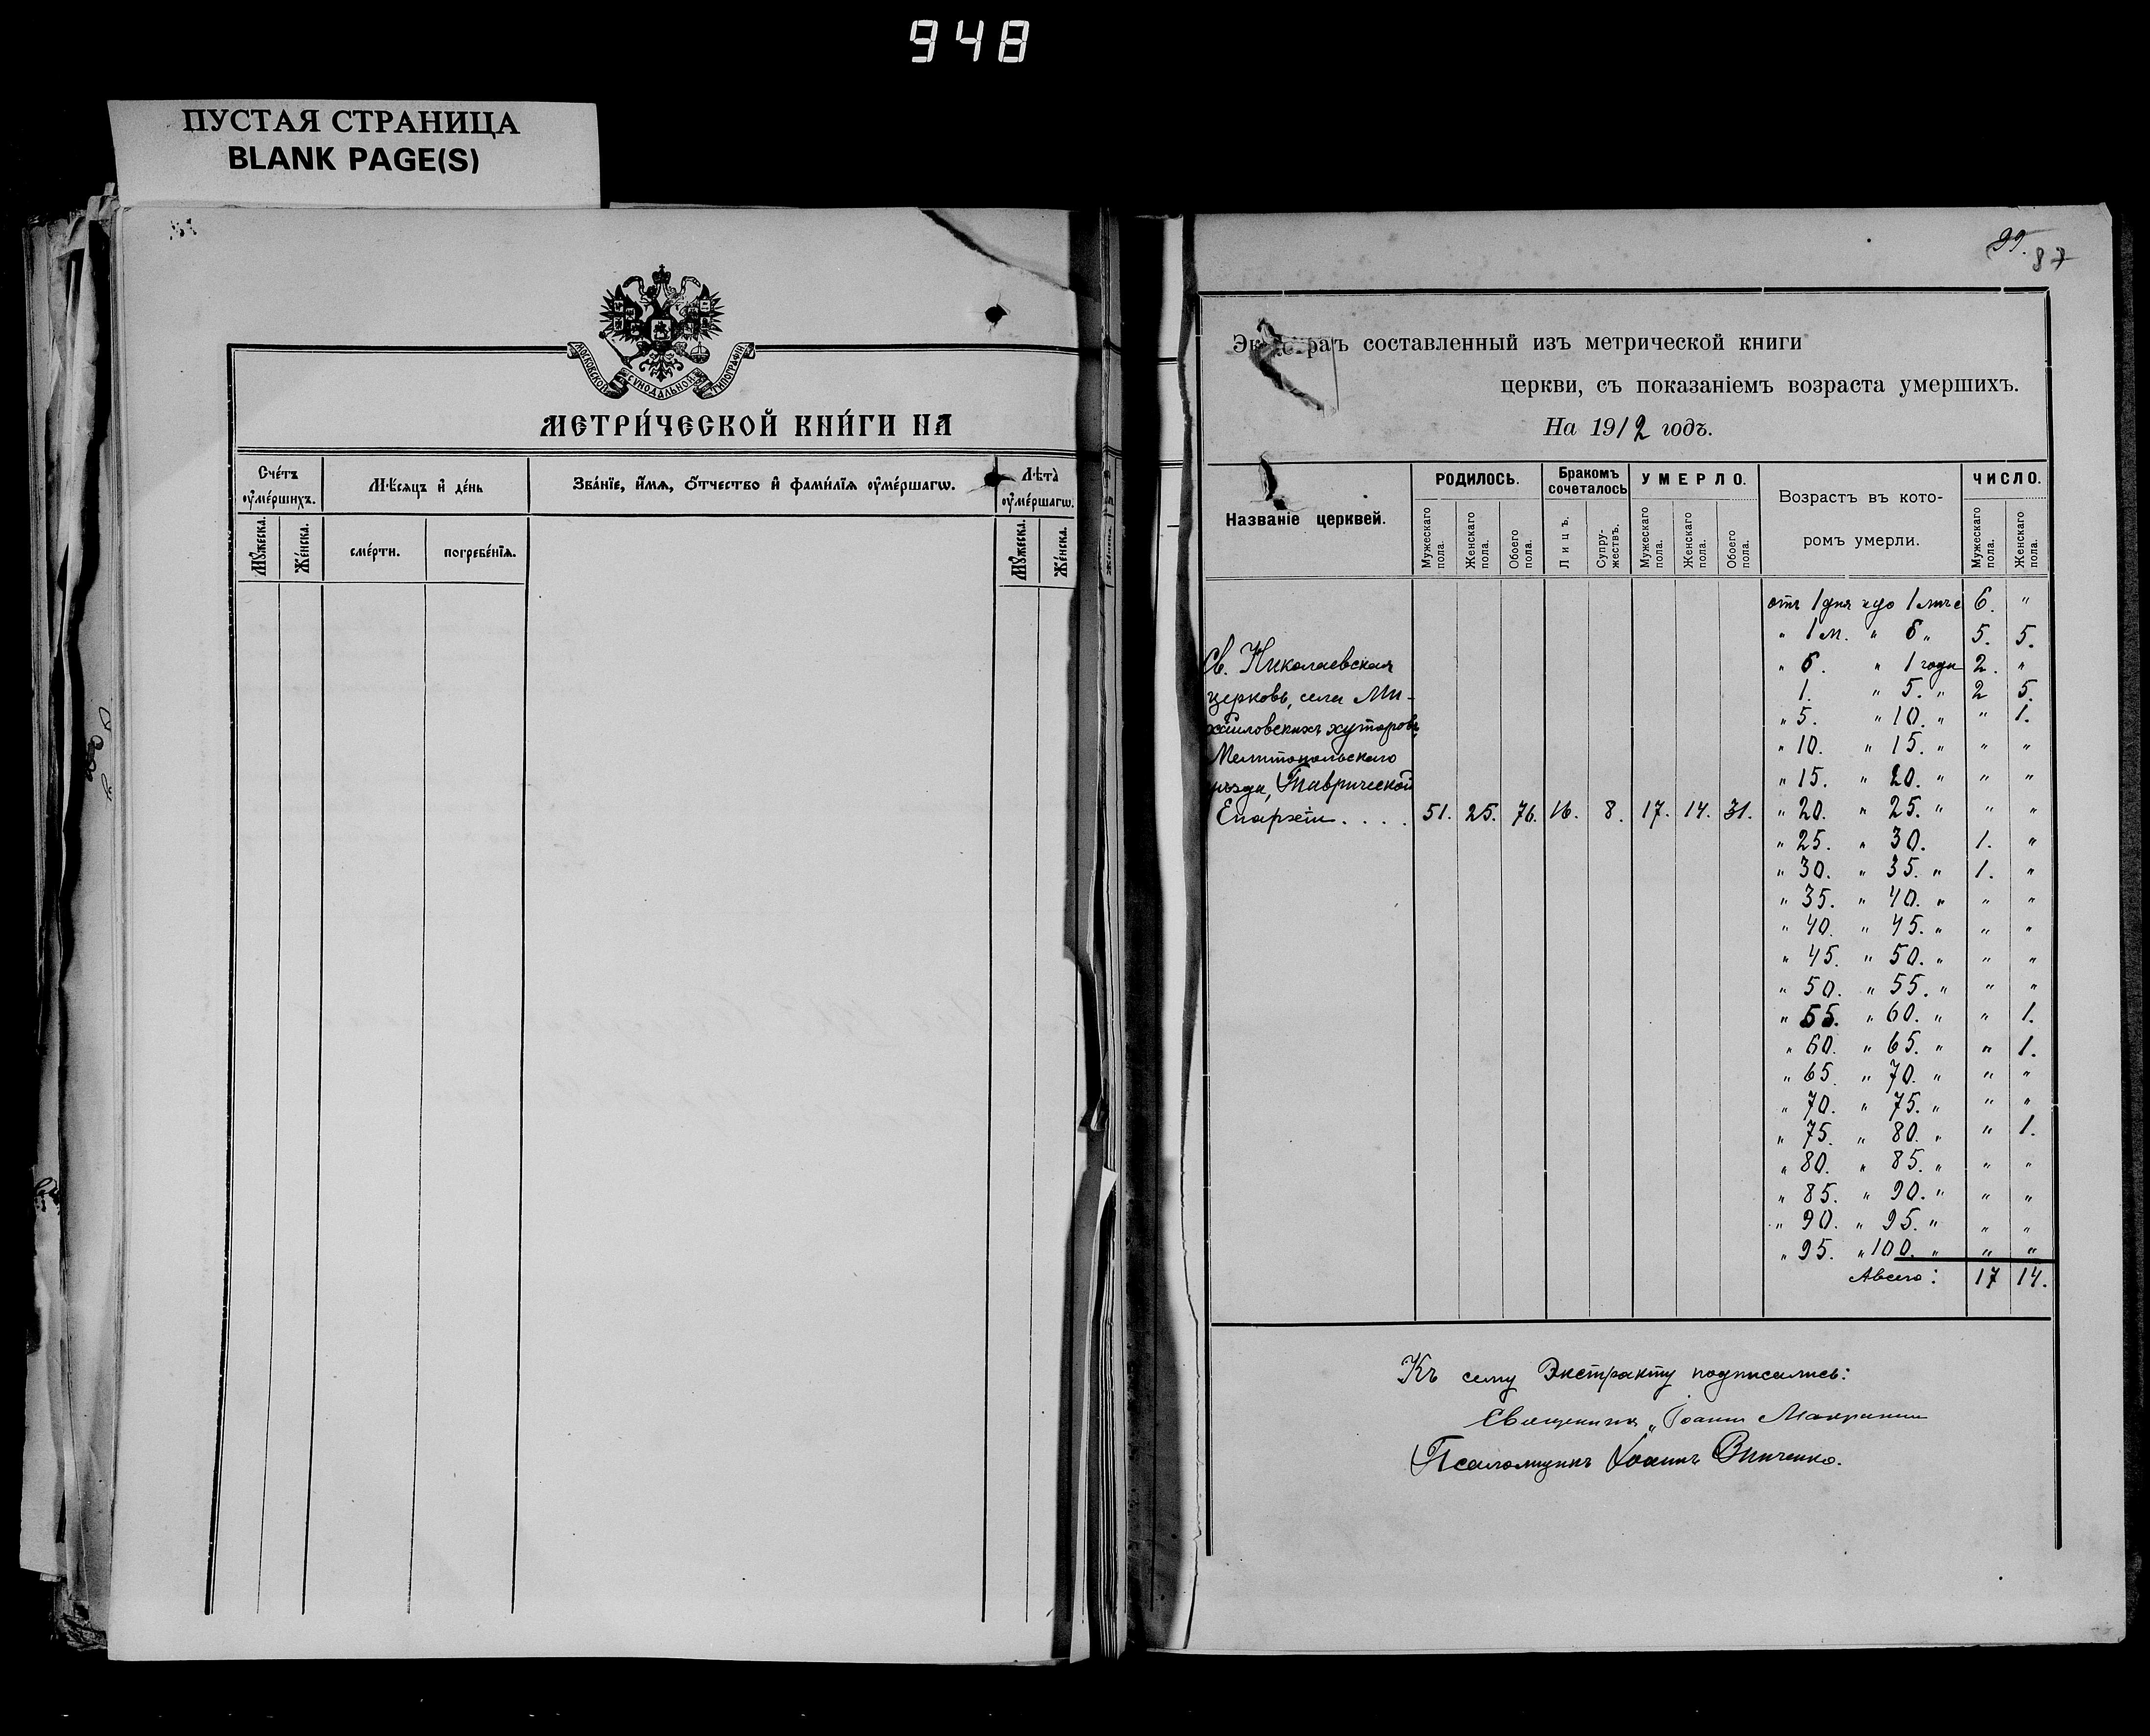 948
ПУСТАЯ СТРАНИЦА
BLANK PAGE(S)
МОСКОВСКОЙ СѴНОДАЛЬНОЙ ТИПОГРАФІИ
МЕТРИ́ЧЕСКОЙ КНИ́ГИ НА
Сче́тъ оу҆ме́ршихъ.
Мѣ́сяцъ и҆ де́нь
Зва́нїе, и҆́мѧ, ѻ҆́тчество и҆ фами́лїѧ оу҆ме́ршагѡ.
Лѣ́та оу҆ме́ршагѡ.
Мꙋ́жеска.
Же́нска.
сме́рти.
погребе́нїѧ.
Мꙋ́жеска.
Же́нска.
99.
87
составленный изъ метрической книги
церкви, съ показаніемъ возраста умершихъ.
На 1912 годъ.
Названіе церквей.
РОДИЛОСЬ.
Бракомъ сочеталось
УМЕРЛО.
Возрастъ въ кото-
ромъ умерли.
ЧИСЛО.
Мужескаго пола.
Женскаго пола.
Обоего пола.
Лицъ.
Супру-жествъ.
Мужескаго пола.
Женскаго пола.
Обоего пола.
Мужескаго пола.
Женскаго пола.
Св. Николаевская
церковь, села Ми-
хайловскихъ хуторовъ,
Мелитопольскаго
уѣзда, Таврической
Епархіи . . . . 51. 25. 76. 16. 8. 17. 14. 31.
отъ 1 дня до 1 6. "
" 1 м. " 6 " 5. 5.
" 6. " 1 года 2. "
1. " 5. " 2 5.
" 5. " 10. " " 1.
" 10. " 15. " " "
" 15. " 20. " " "
" 20. " 25. " " "
" 25. " 30. 1. "
" 30. " 35. " 1. "
" 35. " 40. " " "
" 40. " 45. " " "
" 45. " 50. " " "
" 50. " 55. " " "
" 55. " 60. " " 1.
" 60. " 65. " " 1.
" 65. " 70. " " "
" 70. " 75. " " "
" 75. " 80. " " 1.
" 80. " 85. " " "
" 85. " 90. " " "
" 90. " 95. " " "
" 95. " 100. " " "
Авсего: 17 14.
Къ сему Экстракту подписались:
Священникъ Іоаннъ
Псаломщикъ Іоаннъ Винченко.